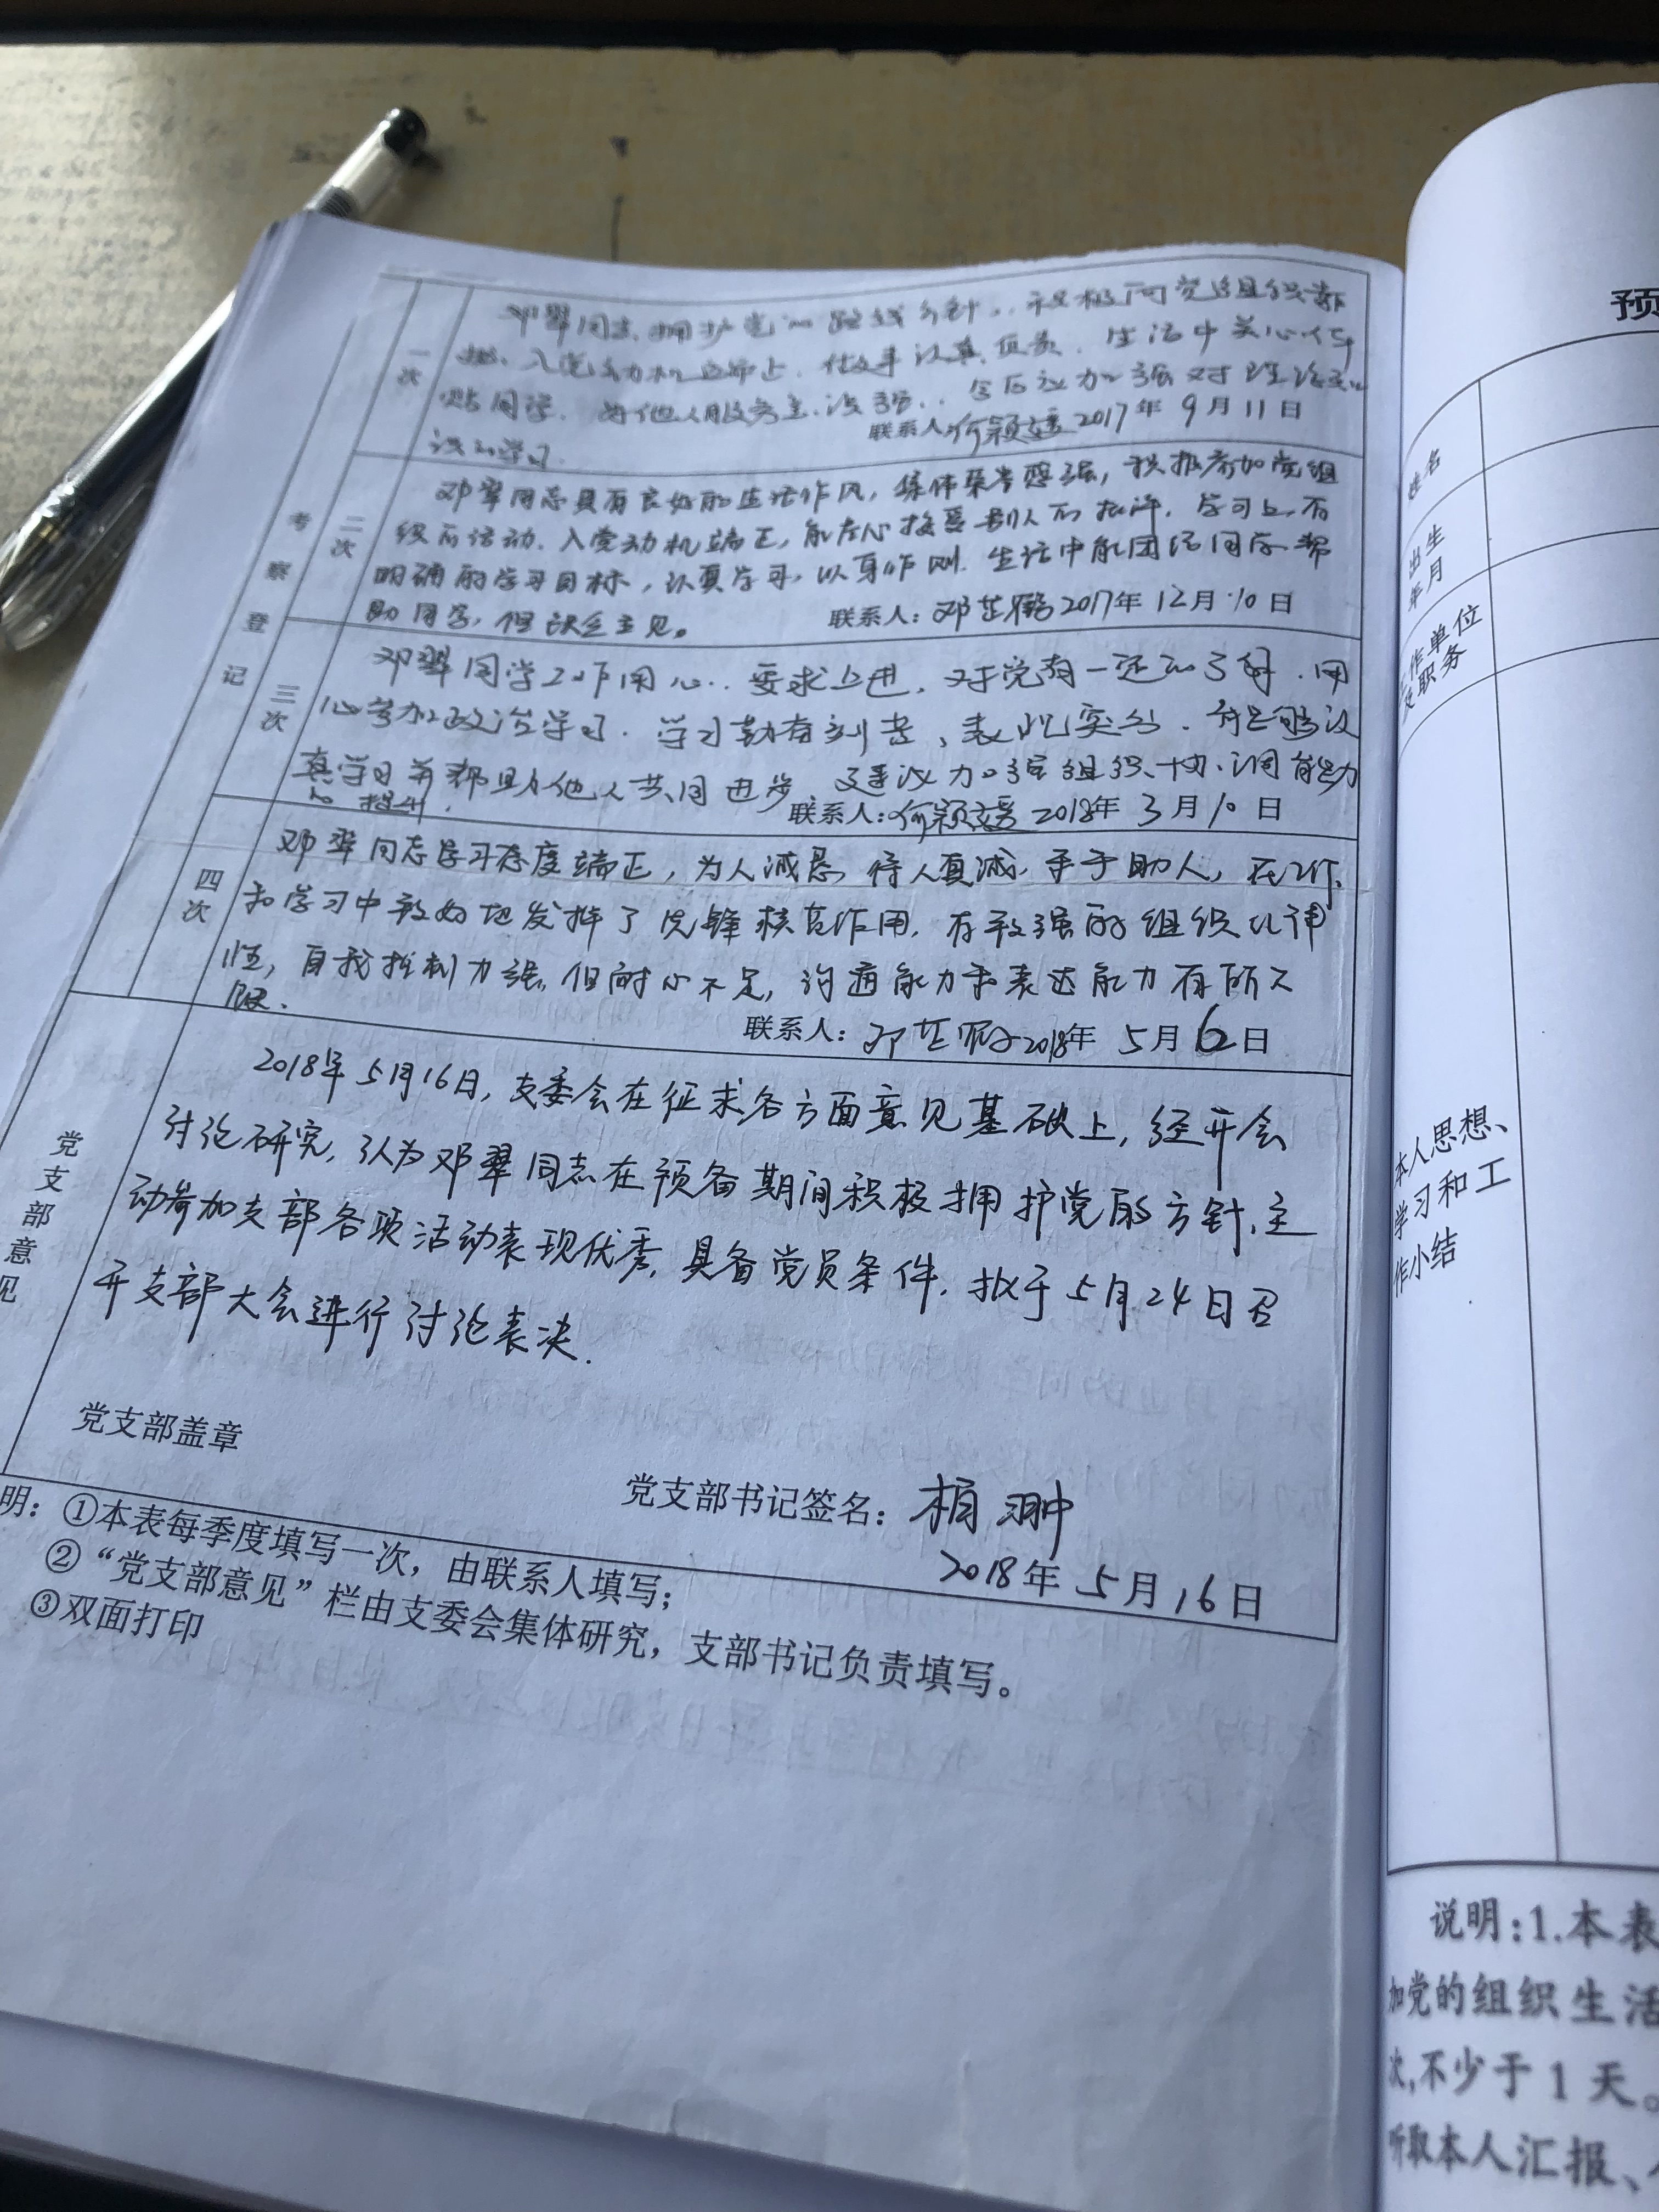 考察登记
一次
邓翠同志拥护党的路线方针，积极向党组织靠
入党动机端正上，做事认真负责，生活中关心体
贴同学，为他人服务意识强，今后应加强对理论知
识的学习.
联系人 何颖 2017年9月11日
二次
邓翠同志具有良好的生活作风，集体荣誉感强，积极参加党组
织的活动. 入党动机端正，能虚心接受别人的批评. 学习上，有
明确的学习目标，认真学习，以身作则. 生活中能团结同学帮
助同学，但缺乏主见。
联系人：邓芷 2017年12月10日
三次
邓翠同学工作用心，要求上进，对党有一定的了解，用
心参加政治学习. 学习勤奋刻苦，表现突出，能够认
真学习并帮助他人共同进步，建议加强组织、协调能力
的提升.
联系人：何颖 2018年3月10日
四次
邓翠同志学习态度端正，为人诚恳，待人真诚，乐于助人，在工作
和学习中较好地发挥了先锋模范作用，有较强的组织纪律
性，自我控制力强，但耐心不足，沟通能力和表达能力有所欠
缺.
联系人：邓芷 2018年5月6日
党支部意见
2018年5月16日，支委会在征求各方面意见基础上，经开会
讨论研究，认为邓翠同志在预备期间积极拥护党的方针，主
动参加支部各项活动表现优秀，具备党员条件，拟于5月24日召
开支部大会进行讨论表决.
党支部盖章
党支部书记签名：柏翀
2018年5月16日
明：①本表每季度填写一次，由联系人填写；
②“党支部意见”栏由支委会集体研究，支部书记负责填写。
③双面打印
预
姓名
出生
年月
工作单位
及职务
本人思想、
学习和工
作小结
说明：1.本表
加党的组织生活
次，不少于1天。
听取本人汇报、